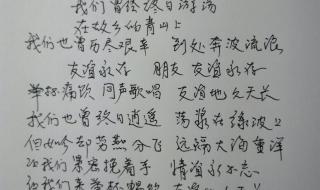 我们曾终日游荡
在故乡的青山上
我们也曾历尽艰辛 到处奔波流浪
友谊永存 朋友 友谊永存
举杯痛饮 同声歌唱 友谊地久天长
我们也曾终日逍遥 荡桨在绿波上
但如今却劳燕分飞 远隔大海重洋
让我们紧密挽着手 情谊永不忘
让我们来举杯